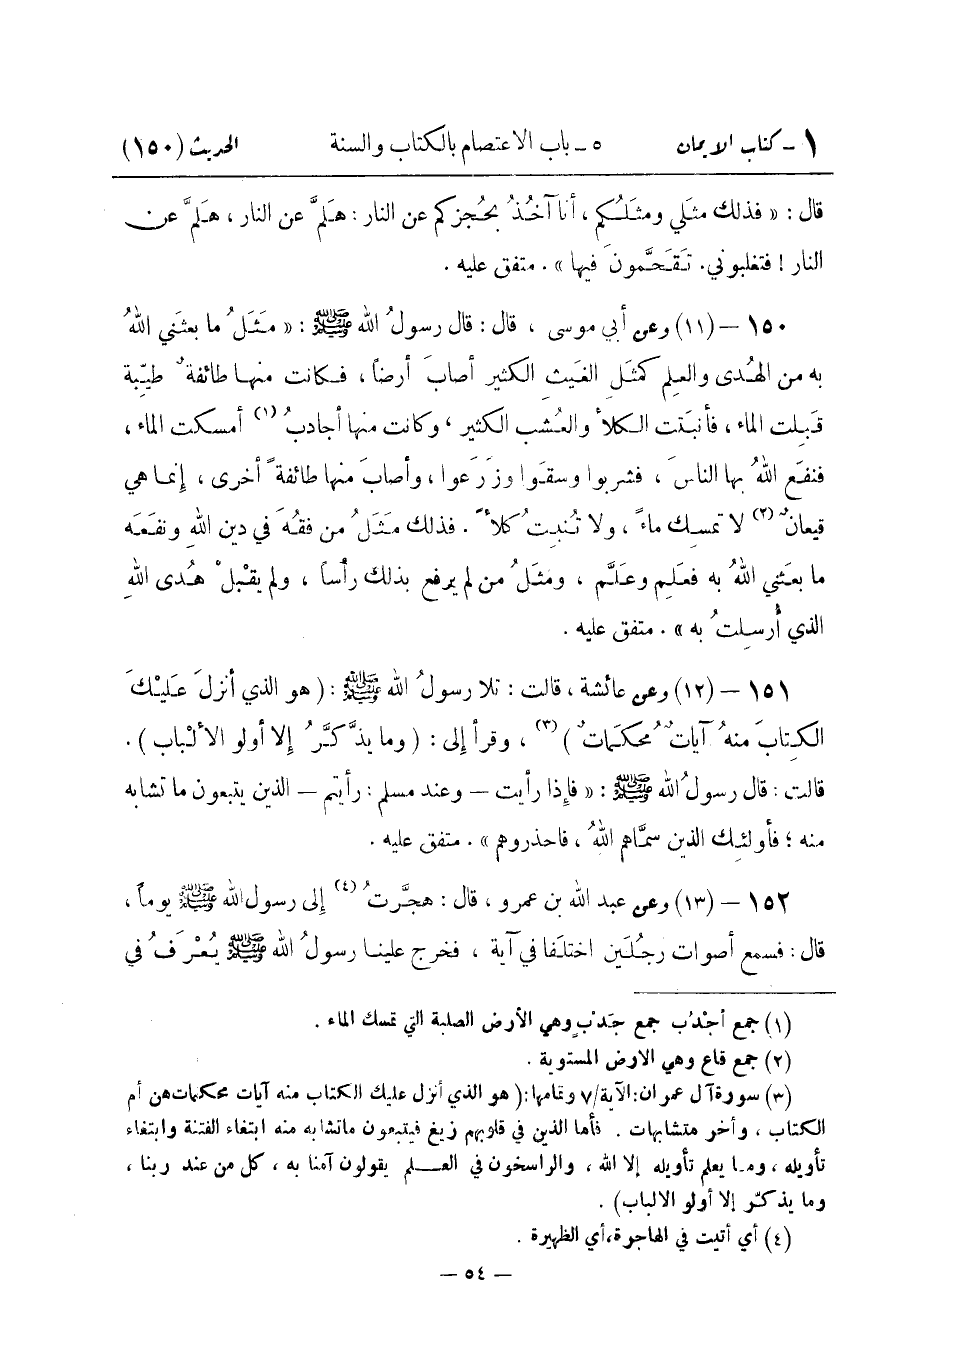 ١ - كتاب الايمان ٥ - باب الاعتصام بالكتاب والسنة الحديث (١٥٠)
قال : « فذلك مثلي ومثلُكم ، أنا آخُذُ بحُجزكم عن النار : هلمَّ عن النار ، هلمَّ عن
النار ! فتغلبوني. تَقَحَّمونَ فيها » . متفق عليه .
١٥٠ - (١١) وعن أبي موسى ، قال : قال رسولُ الله ﷺ : « مَثَلُ ما بعثَني اللهُ
به من الهُدى والعلمِ كمثَلِ الغيثِ الكثيرِ أصابَ أرضاً ، فكانت منها طائفةٌ طيّبة
قَبِلت الماء ، فأنبَتت الكلأَ والعُشبَ الكثير ، وكانت منها أجادبُ (١) أمسكت الماء ،
فنفَع اللهُ بها الناسَ ، فشربوا وسقَوا وزَرَعوا ، وأصابَ منها طائفةً أخرى ، إنما هي
قيعانٌ (٢) لا تمسك ماءً ، ولا تُنبِتُ كلأً . فذلك مَثَلُ من فقُهَ في دين اللهِ ونفَعَه
ما بعثني اللهُ به فعلِم وعلَّم ، ومثَلُ من لم يرفع بذلك رأساً ، ولم يقْبلْ هُدى اللهِ
الذي أُرسلتُ به » . متفق عليه .
١٥١ - (١٢) وعن عائشة ، قالت : تلا رسولُ الله ﷺ : ( هو الذي أنزلَ عَليْكَ
الكتابَ منهُ آياتٌ مُحكَماتٌ ) (٣) ، وقرأ إلى : ( وما يذَّكَّرُ إلا أولو الألْباب ) .
قالت : قال رسولُ الله ﷺ : « فإذا رأيت - وعند مسلم : رأيتم - الذين يتبعون ما تشابه
منه ؛ فأولئِك الذين سمَّاهم اللهُ ، فاحذروهم » . متفق عليه .
١٥٢ - (١٣) وعن عبد الله بن عمرو ، قال : هجَّرتُ (٤) إلى رسول الله ﷺ يوماً ،
قال : فسمع أصوات رجُلَين اختلَفا في آية ، فخرج علينا رسولُ الله ﷺ يُعْرَفُ في
(١) جمع أجْدُب جمع جَدْبٍ وهي الأرض الصلبة التي تمسك الماء .
(٢) جمع قاع وهي الارض المستوية .
(٣) سورة آل عمران : الآية/٧ وتمامها : ( هو الذي أنزل عليك الكتاب منه آيات محكمات هن أم
الكتاب ، وأخر متشابهات . فأما الذين في قلوبهم زيغ فيتبعون ماتشابه منه ابتغاء الفتنة وابتغاء
تأويله ، وما يعلم تأويله إلا الله ، والراسخون في العلم يقولون آمنا به ، كل من عند ربنا ،
وما يذكّر إلا أولو الالباب ) .
(٤) أي أتيت في الهاجرة،أي الظهيرة .
- ٥٤ -